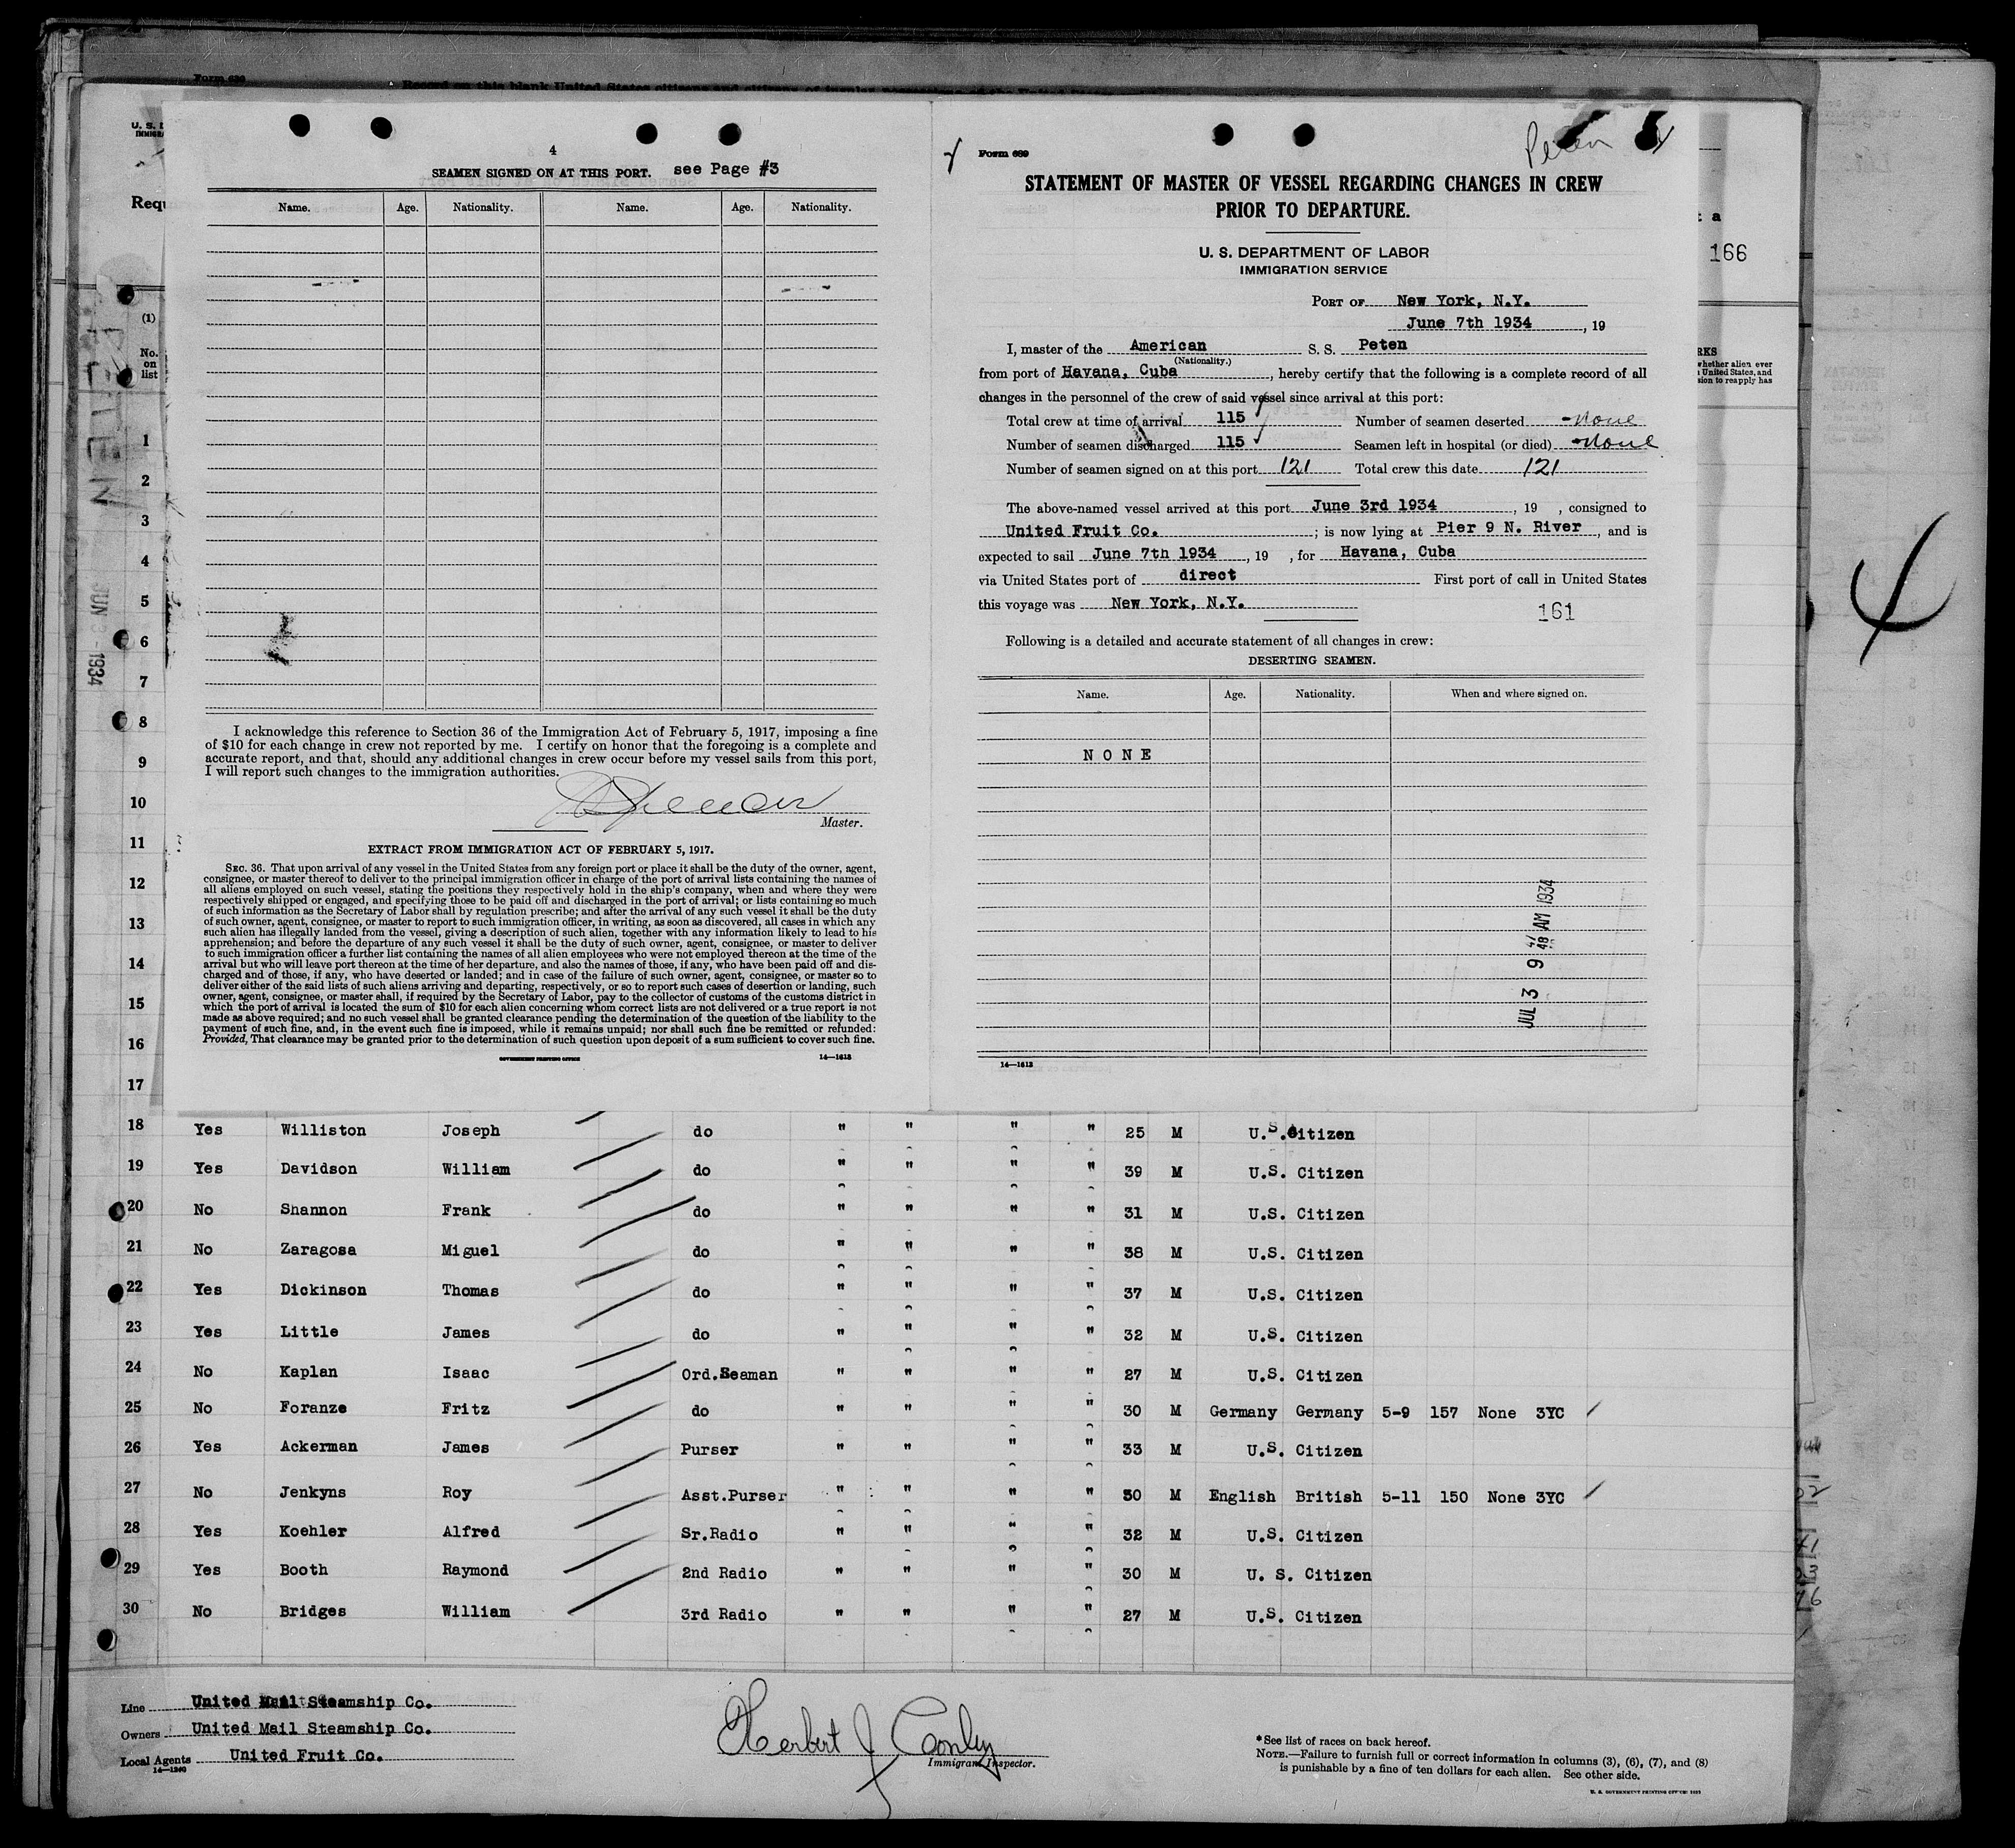 Form 630
Record on this blank United States citizens and citizens of insular possessions of the United States
U. S. D
IMMIGRA
Requ
(1)
No.
on
list
1
2
3
4
5
6
7
8
9
10
11
12
13
14
15
16
17
PETEN
JUN 3 - 1934
4
SEAMEN SIGNED ON AT THIS PORT. see Page #3
Name. Age. Nationality. Name. Age. Nationality.
I acknowledge this reference to Section 36 of the Immigration Act of February 5, 1917, imposing a fine
of $10 for each change in crew not reported by me. I certify on honor that the foregoing is a complete and
accurate report, and that, should any additional changes in crew occur before my vessel sails from this port,
I will report such changes to the immigration authorities.
Master.
EXTRACT FROM IMMIGRATION ACT OF FEBRUARY 5, 1917.
SEC. 36. That upon arrival of any vessel in the United States from any foreign port or place it shall be the duty of the owner, agent,
consignee, or master thereof to deliver to the principal immigration officer in charge of the port of arrival lists containing the names of
all aliens employed on such vessel, stating the positions they respectively hold in the ship's company, when and where they were
respectively shipped or engaged, and specifying those to be paid off and discharged in the port of arrival; or lists containing so much
of such information as the Secretary of Labor shall by regulation prescribe; and after the arrival of any such vessel it shall be the duty
of such owner, agent, consignee, or master to report to such immigration officer, in writing, as soon as discovered, all cases in which any
such alien has illegally landed from the vessel, giving a description of such alien, together with any information likely to lead to his
apprehension; and before the departure of any such vessel it shall be the duty of such owner, agent, consignee, or master to deliver
to such immigration officer a further list containing the names of all alien employees who were not employed thereon at the time of the
arrival but who will leave port thereon at the time of her departure, and also the names of those, if any, who have been paid off and dis-
charged and of those, if any, who have deserted or landed; and in case of the failure of such owner, agent, consignee, or master so to
deliver either of the said lists of such aliens arriving and departing, respectively, or so to report such cases of desertion or landing, such
owner, agent, consignee, or master shall, if required by the Secretary of Labor, pay to the collector of customs of the customs district in
which the port of arrival is located the sum of $10 for each alien concerning whom correct lists are not delivered or a true report is not
made as above required; and no such vessel shall be granted clearance pending the determination of the question of the liability to the
payment of such fine, and, in the event such fine is imposed, while it remains unpaid; nor shall such fine be remitted or refunded:
Provided, That clearance may be granted prior to the determination of such question upon deposit of a sum sufficient to cover such fine.
GOVERNMENT PRINTING OFFICE 14—1613
Form 689
Peten
STATEMENT OF MASTER OF VESSEL REGARDING CHANGES IN CREW
PRIOR TO DEPARTURE.
U. S. DEPARTMENT OF LABOR
IMMIGRATION SERVICE
PORT OF New York, N.Y.
June 7th 1934, 19
I, master of the American S. S. Peten
(Nationality.)
from port of Havana, Cuba, hereby certify that the following is a complete record of all
changes in the personnel of the crew of said vessel since arrival at this port:
Total crew at time of arrival 115 Number of seamen deserted -none
Number of seamen discharged 115 Seamen left in hospital (or died) -none
Number of seamen signed on at this port 121 Total crew this date 121
The above-named vessel arrived at this port June 3rd 1934, 19 , consigned to
United Fruit Co. ; is now lying at Pier 9 N. River, and is
expected to sail June 7th 1934, 19 , for Havana, Cuba
via United States port of direct First port of call in United States
this voyage was New York, N.Y.
161
Following is a detailed and accurate statement of all changes in crew:
DESERTING SEAMEN.
Name. Age. Nationality. When and where signed on.
NONE
JUL 3 9 48 AM 1934
14—1613
t a
166
RKS
whether alien ever
United States, and
sion to reapply has
4
18 Yes Williston Joseph do " " " " 25 M U.S. Citizen
19 Yes Davidson William do " " " " 39 M U.S. Citizen
20 No Shannon Frank do " " " " 31 M U.S. Citizen
21 No Zaragosa Miguel do " " " " 38 M U.S. Citizen
22 Yes Dickinson Thomas do " " " " 37 M U.S. Citizen
23 Yes Little James do " " " " 32 M U.S. Citizen
24 No Kaplan Isaac Ord.Seaman " " " " 27 M U.S. Citizen
25 No Foranze Fritz do " " " " 30 M Germany Germany 5-9 157 None 3YC
26 Yes Ackerman James Purser " " " " 33 M U.S. Citizen
27 No Jenkyns Roy Asst.Purser " " " " 30 M English British 5-11 150 None 3YC
28 Yes Koehler Alfred Sr.Radio " " " " 32 M U.S. Citizen
29 Yes Booth Raymond 2nd Radio " " " " 30 M U. S. Citizen
30 No Bridges William 3rd Radio " " " " 27 M U.S. Citizen
Line United Mail Steamship Co.
Owners United Mail Steamship Co.
Local Agents United Fruit Co.
14—1240
Herbert J Conley
Immigrant Inspector.
*See list of races on back hereof.
NOTE.—Failure to furnish full or correct information in columns (3), (6), (7), and (8)
is punishable by a fine of ten dollars for each alien. See other side.